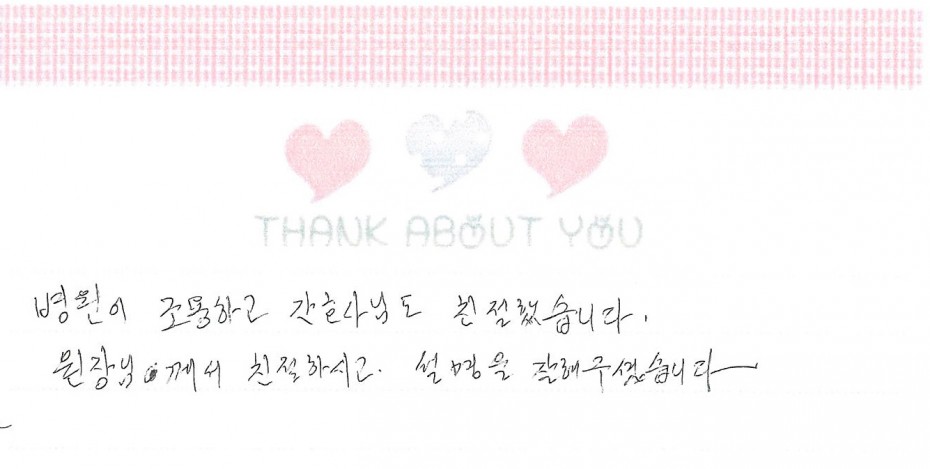 THANK ABOUT YOU
병원이 조용하고 간호사님도 친절했습니다.
원장님께서 친절하시고. 설명을 잘해주셨습니다